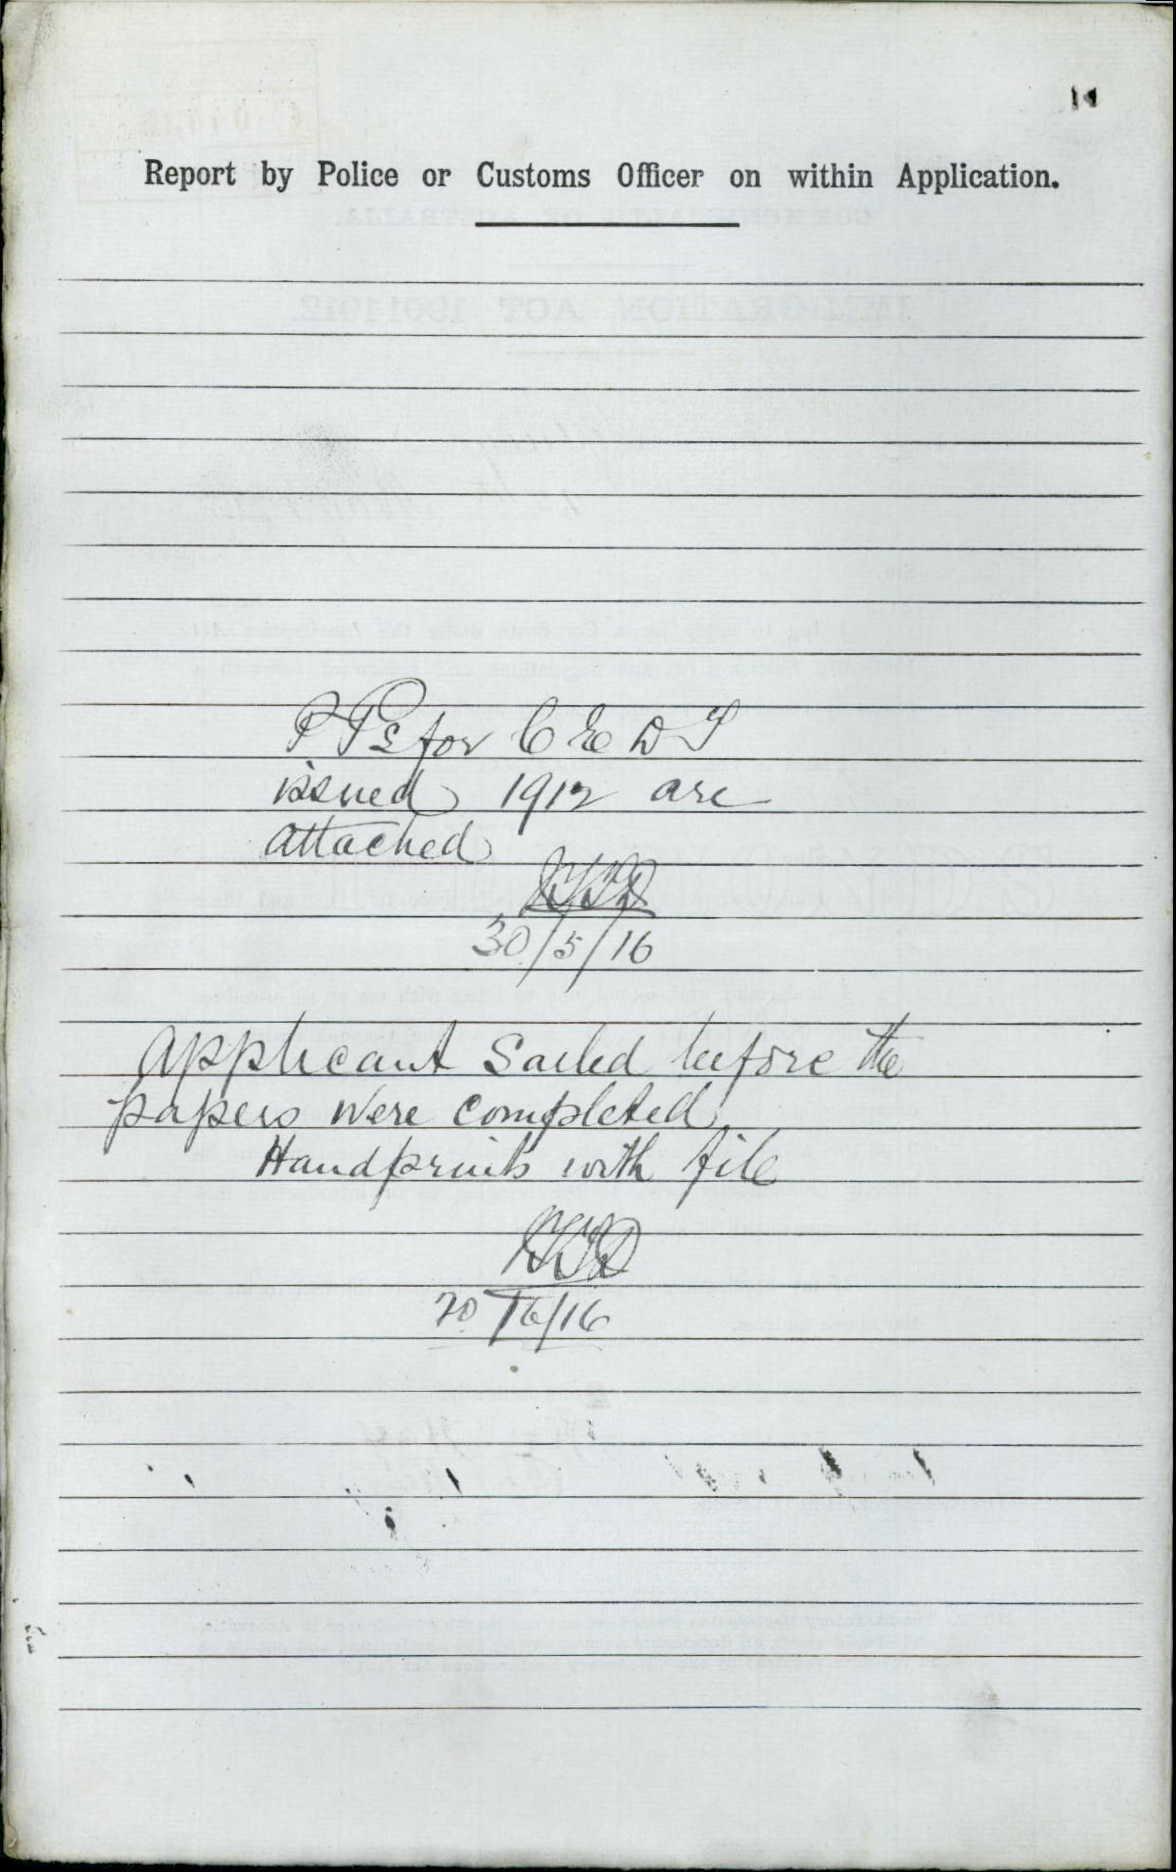 Report by Police or Customs Officer on within Application.
P Ps for C E D T
issued 1912 are
attached
30/5/16
Applicant sailed before the
papers were completed
Handprints with file
20/6/16